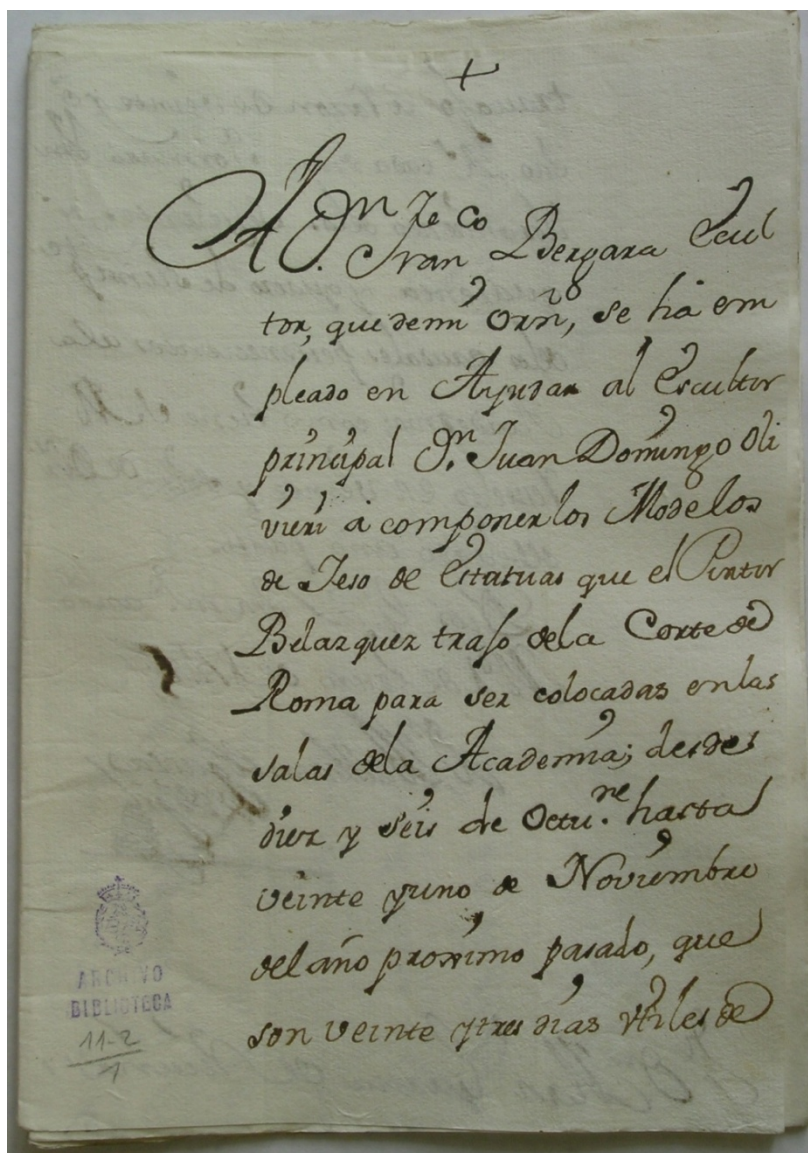 +
A D.ⁿ Fr.co
Juan Bergara Escul
tor, que demi Orñ, se há em
pleado en Ayudar al Escultor
prinsipal D.ⁿ Juan Domingo Oli
vieri à componer los Modelos
de Ieso de Estatuas que el Pintor
Belazquez trajo dela Corte de
Roma para ser colocadas en las
salas dela Academia; desde
diez y seis de Octu.re hasta
veinte yuno de Noviembre
del año proximo pasado, que
son veinte ytres dias utiles de
ARCHIVO
BIBLIOTECA
11-2
1